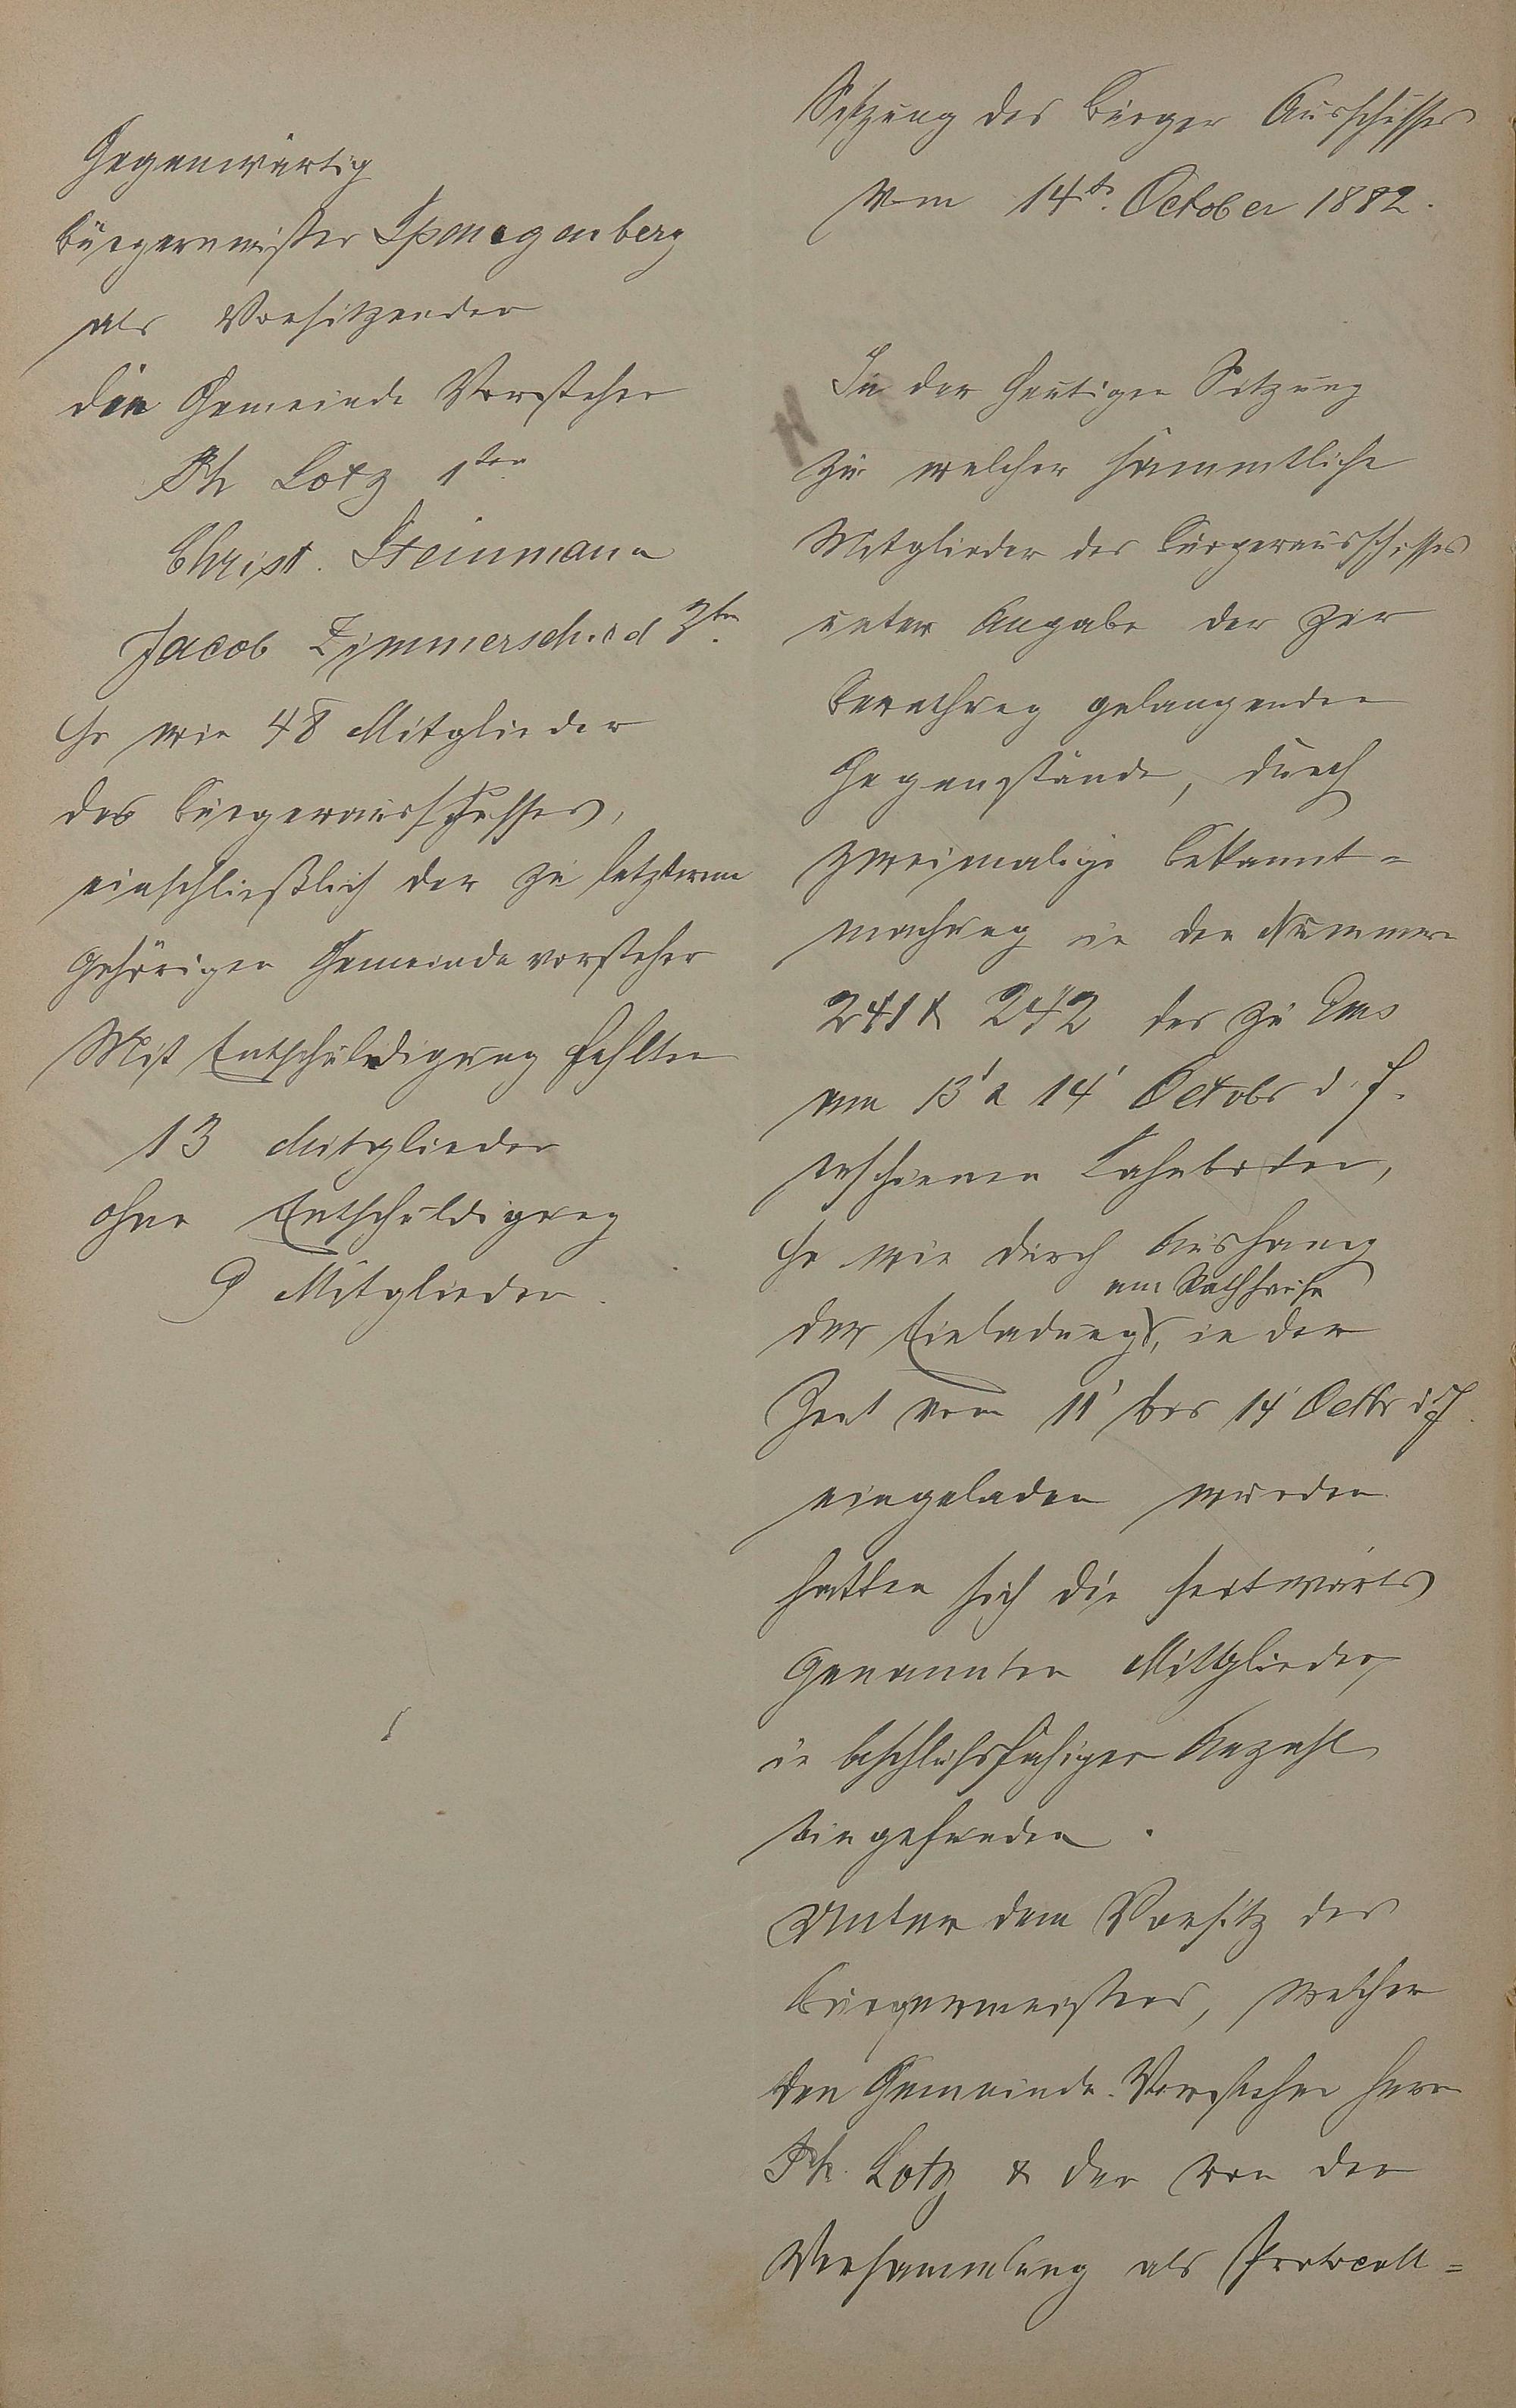 Gegenwärtig
Bürgermeister Spangenberg
als Vorsitzender
die Gemeinde Vorsteher
Ph Lotz 1ten
Christ. Steinmann
Jacob Zimmerschied 3ten
so wie 48 Mitglieder
des Bürgerausschusses,
einschließlich der zu letzterem
gehörigen Gemeindevorsteher
Mit Entschuldigung fehlten
13 Mitglieder
ohne Entschuldigung
9 Mitglieder.
Sitzung des Bürger Ausschusses
vom 14t. October 1882.
In der heutigen Sitzung
zu welcher sämmtliche
Mitglieder des Bürgerausschusses
unter Angabe der zur
Berathung gelangenden
Gegenstände, durch
zweimalige Bekannt=
machung in den Nummern
241 & 242 des zu Ems
am 13' & 14' Octobr d. J.
erschienen Lahnboten,
so wie durch Aushang
am Rathhause
der Einladung, in der
Zeit vom 11' bis 14' Octbr d J.
eingeladen wurden
hatten sich die seitwärts
genannten Mitglieder,
in beschlußfähiger Anzahl
eingefunden.
Unter dem Vorsitz des
Bürgermeisters, welcher
den Gemeinde-Vorsteher Herrn
Ph. Lotz & der von der
Versammlung als Protocoll=